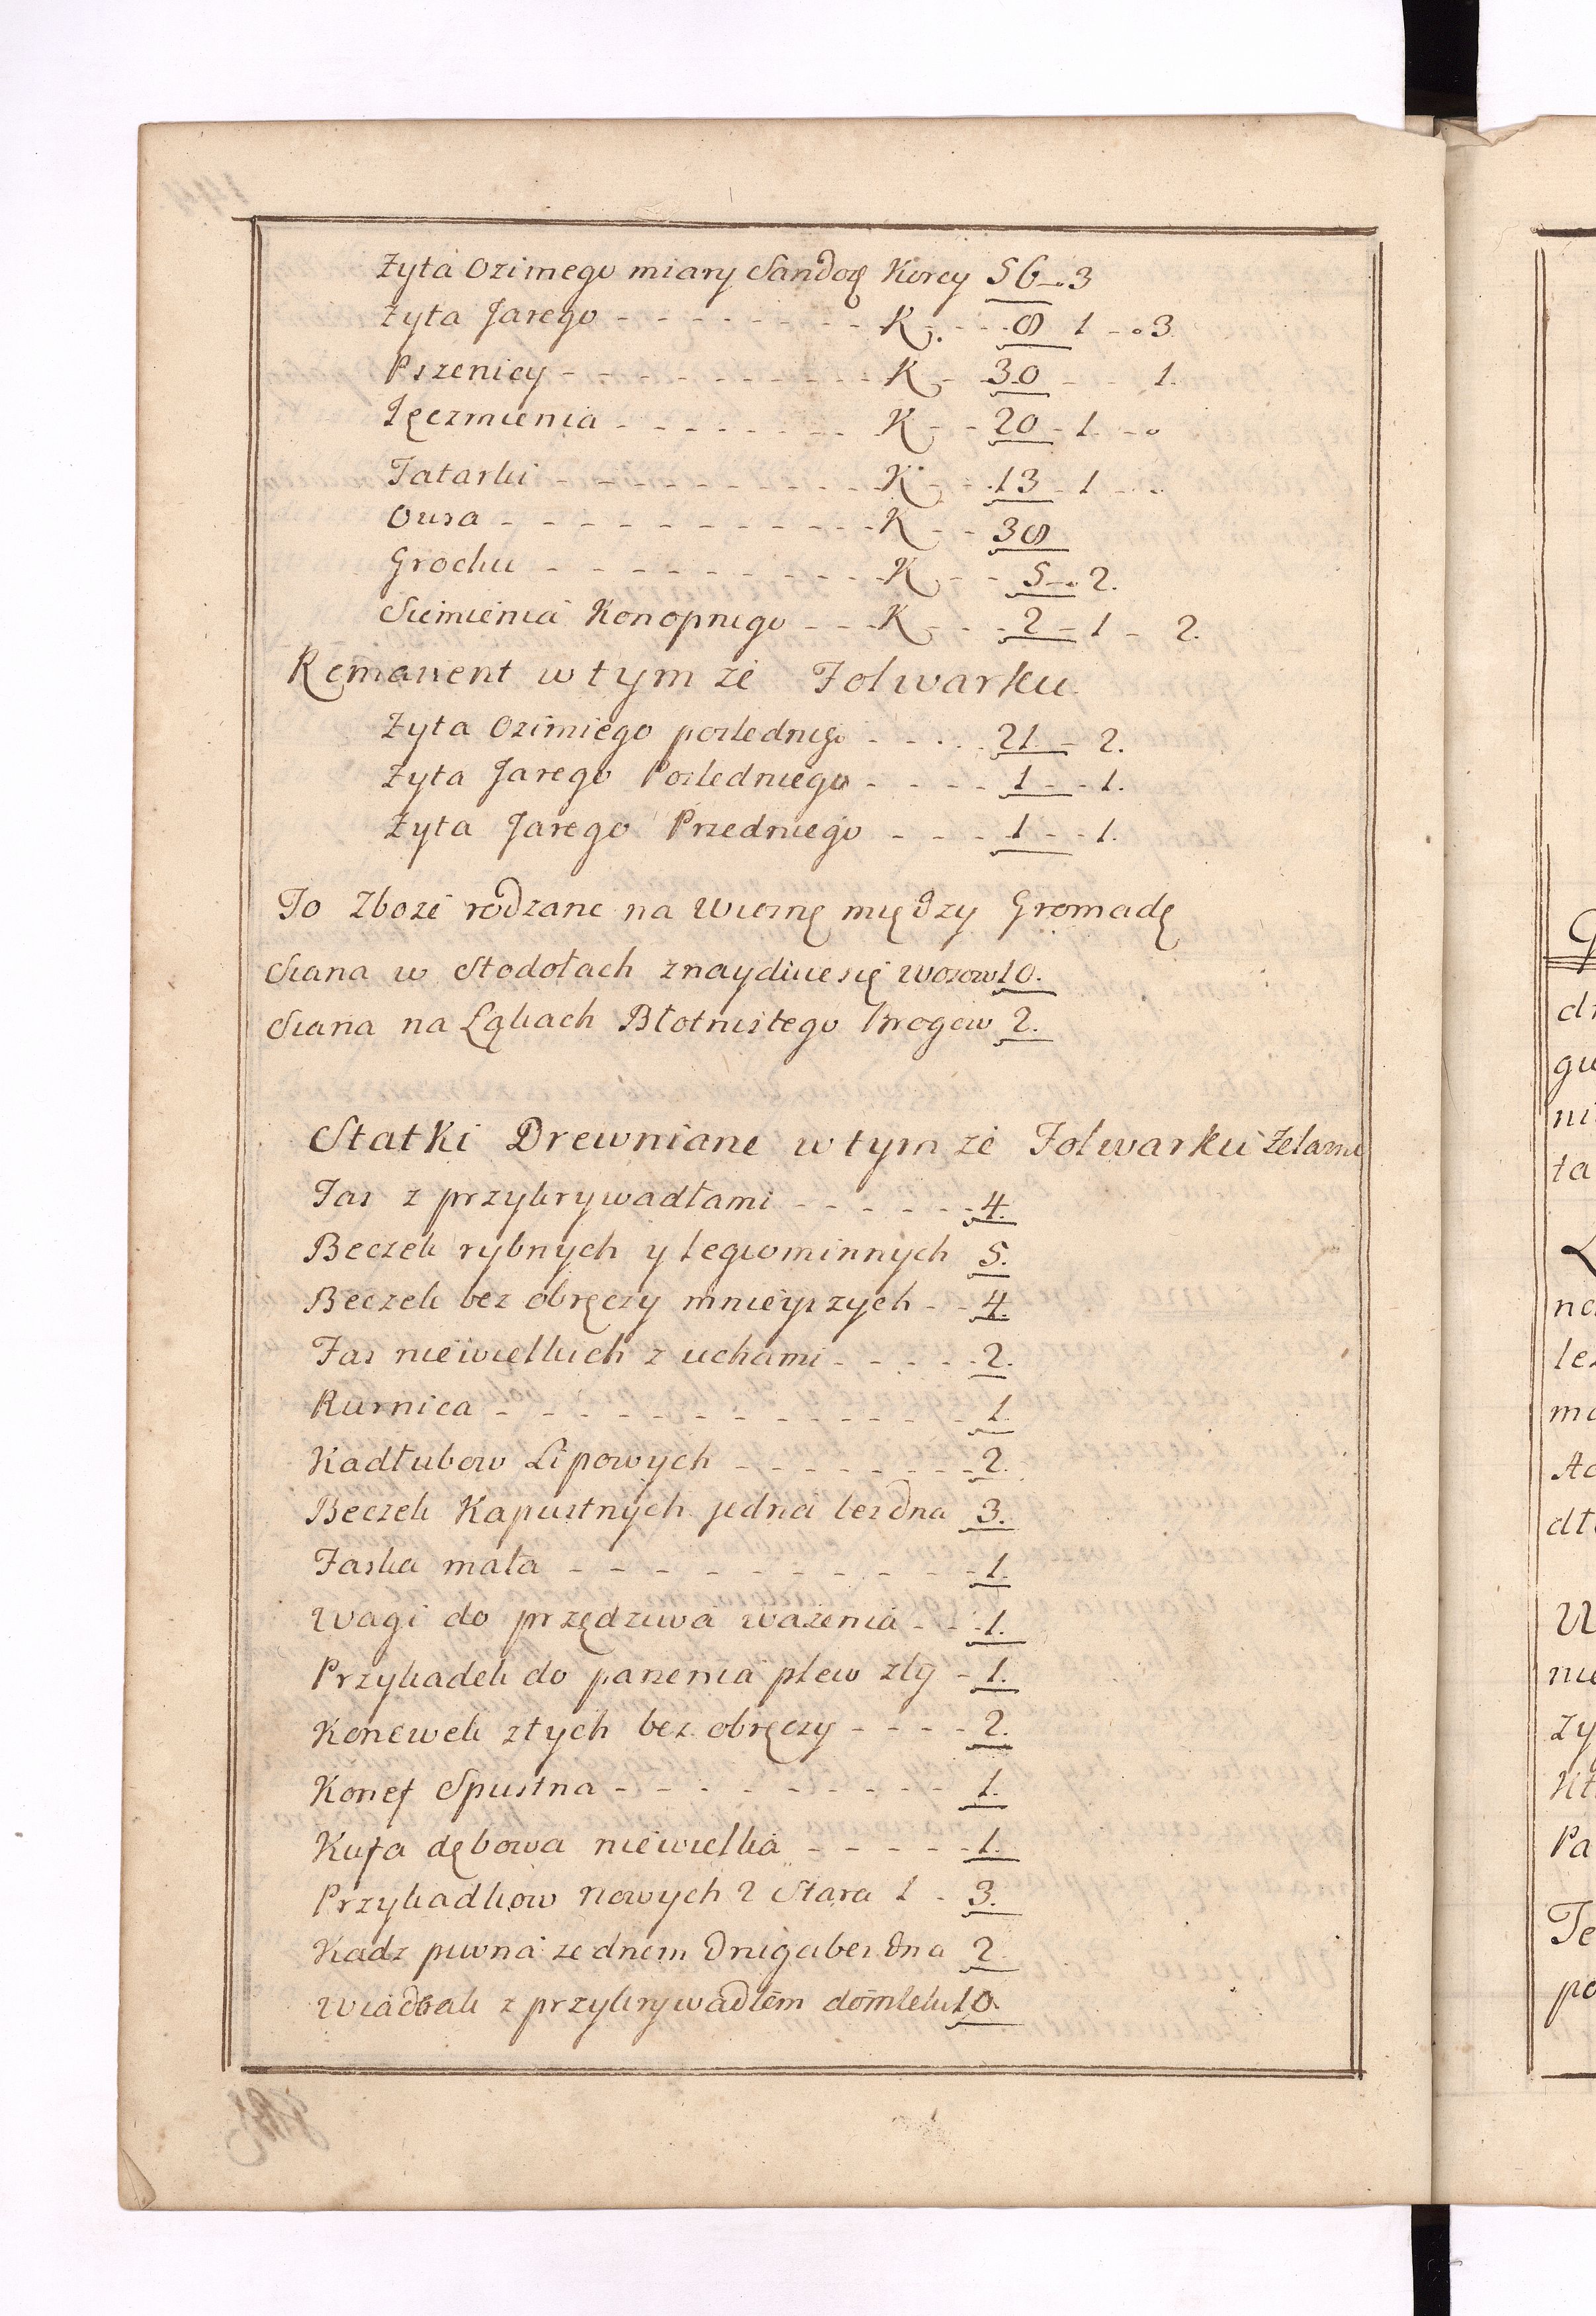 Żyta Ozimego miary Sandoł Korcy 56 - . 3
Żyta Jarego - - - K. - - 8 1 - . 3
Pszenicy - - - K - - 30 - - 1.
Ięczmienia - - - K - - 20 - 1 - .
Tatarki - - - K - - 13 - 1 - .
Owsa - - - K - - 38
Grochu - - - K - - 5 - . 2.
Siemienia Konopnego - - K - - 2 - 1 - 2.
Remanent w tym że Folwarku
Żyta Ozimiego poslednigo - - - 21 - 2.
Żyta Jarego Posledniego - - - 1 - - 1.
Żyta Jarego Przedniego - - - 1 - - 1.
To Zboże rodzane na Wiosnę między Gromadę
Siana w Stodołach znayduie się Wosow 10.
Siana na Łąkach Błotnistego Brogow 2.
Statki Drewniane w tym że Folwarku Żelazne
Fas z przykrywadłami - - - 4.
Beczek rybnych y legwominnych 5.
Beczek bez obręczy mnieyszych - - 4.
Fas niewielkich z uchami - - - 2.
Rurnica - - - 1.
Kadłubow Lipowych - - - 2.
Beczek Kapustnych jedna bez dna 3.
Faska mała - - - 1.
Wagi do przędziwa ważenia - - 1.
Przykadek do parzenia plew zły - 1.
Konewek złych bez obręczy - - - 2.
Konef Spustna - - - 1.
Kufa dębowa niewielka - - - 1.
Przykadkow Nowych 2 Stara 1 - 3.
Kadz piwna ze dnem druga bez dna 2
Wiadrak z przykrywadłem do mleka 10.